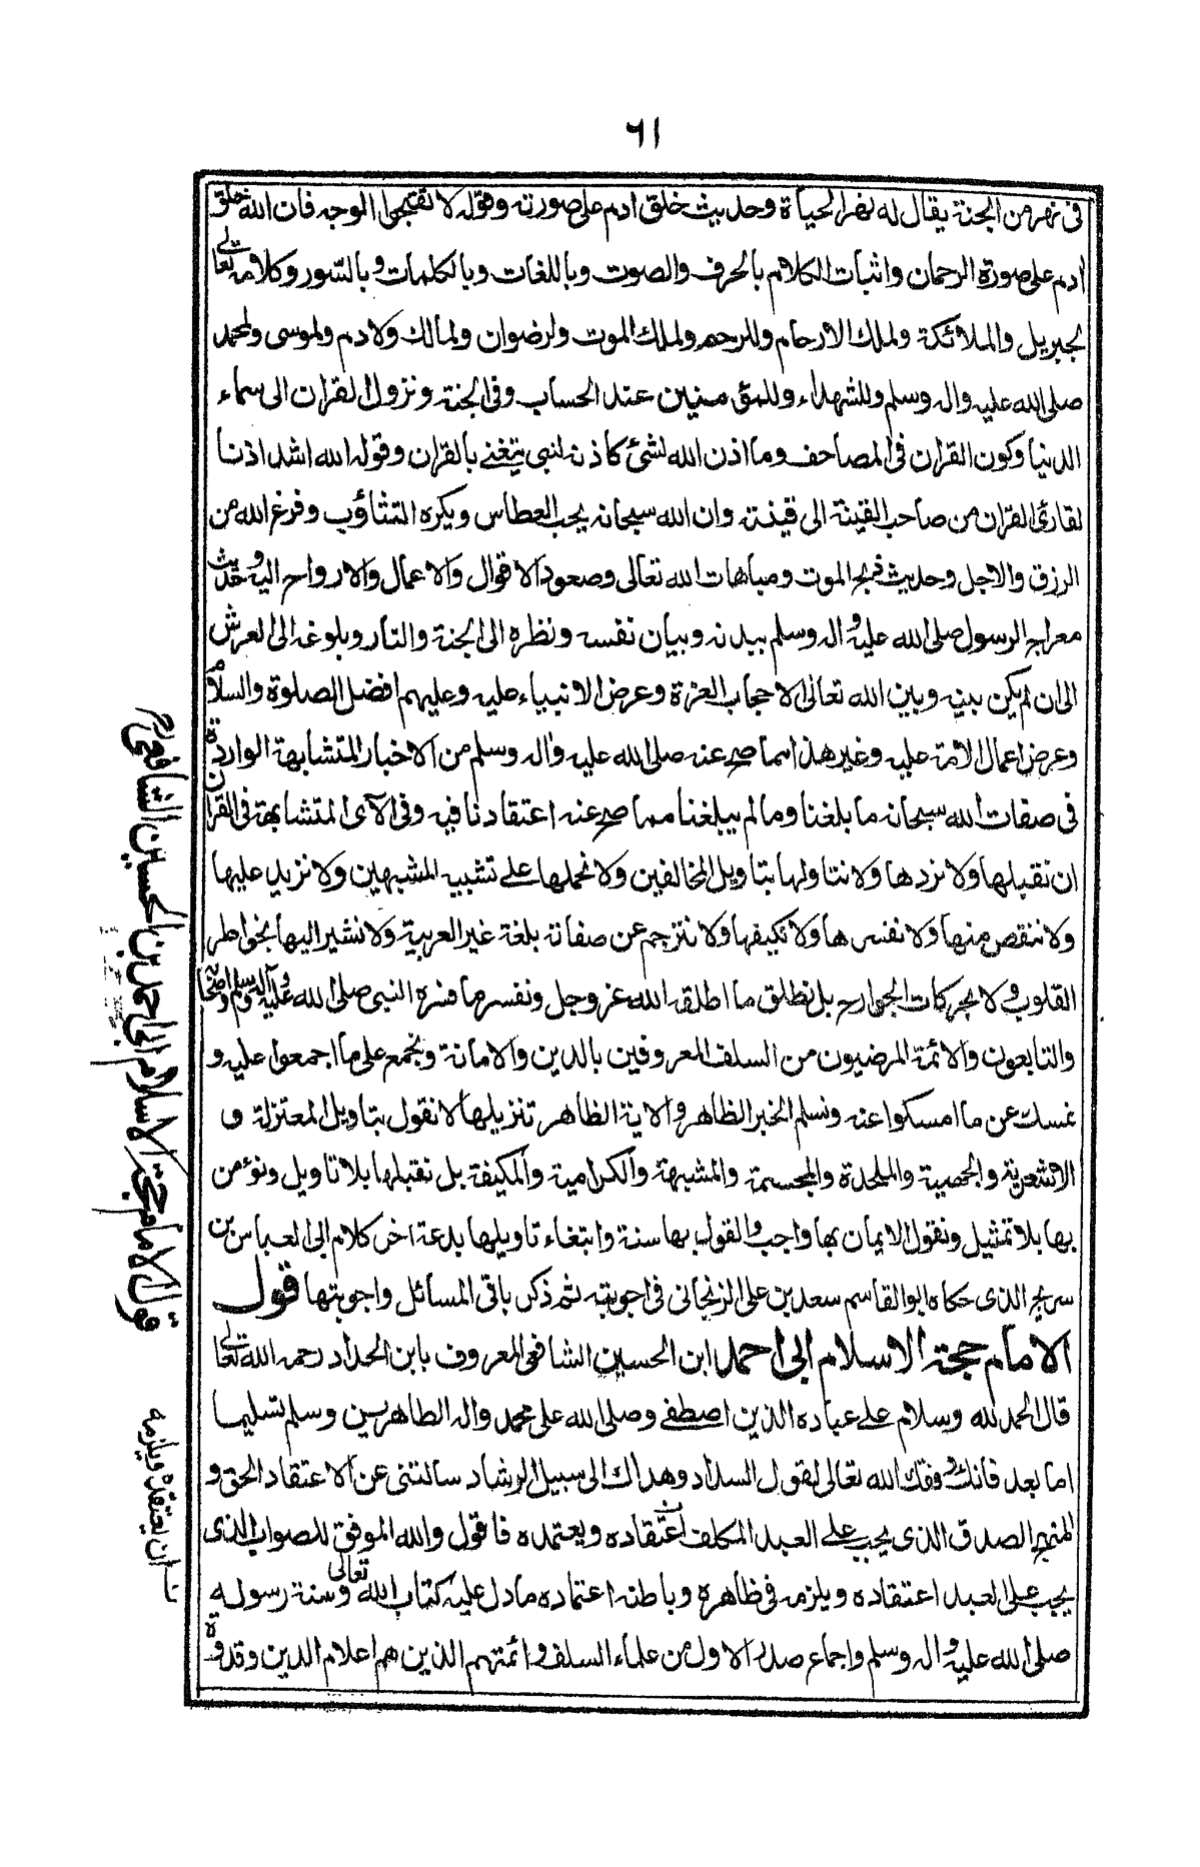 ٦١
فى نهر من الجنة يقال له نهر الحياة وحديث خلق ادم على صورته وقوله لا تقبحوا الوجه فان الله خلق
ادم على صورة الرحمان واثبات الكلام بالحرف والصوت وباللغات وبالكلمات وبالسّور وكلامه تعالى
لجبريل والملائكة ولملك الارحام وللرحم ولملك الموت ولرضوان ولمالك ولادم ولموسى ولمحمد
صلى الله عليه واله وسلم وللشهداء وللمؤمنين عند الحساب وفى الجنة ونزول القران الى سماء
الدنيا وكون القران فى المصاحف وما اذن الله لشئ كاذنه لنبى يتغنے بالقران وقوله الله اشد اذنا
لقارئ القران من صاحب القينة الى قينته وان الله سبحانه يحب العطاس ويكره التثاؤب وفرغ الله من
الرزق والاجل وحديث ذبح الموت ومباهات الله تعالى وصعود الاقوال والاعمال والارواح اليه وحديث
معراج الرسول صلى الله عليه واله وسلم ببدنه وبيان نفسه ونظره الى الجنة والنار وبلوغه الى العرش
الى ان لم يكن بينه وبين الله تعالى الا حجاب العزة وعرض الانبياء عليه وعليهم افضل الصلوة والسلام
وعرض اعمال الامة عليه وغير هذا مما صح عنه صلى الله عليه واله وسلم من الاخبار المتشابهة الواردة
فى صفات الله سبحانه ما بلغنا وما لم يبلغنا مما صح عنه اعتقادنا فيه وفى الآى المتشابهة فى القران
ان نقبلها ولا نردها ولا نتاولها بتاويل المخالفين ولا نحملها علے تشبيه المشبهين ولا نزيد عليها
ولا ننقص منها ولا نفسرها ولا نكيفها ولا نترجم عن صفاته بلغة غير العربية ولا نشير اليها بخواطر
القلوب ولا بحركات الجوارح بل نطلق ما اطلقه الله عز وجل ونفسر ما فسره النبى صلى الله عليه واله وسلم واصحابه
والتابعون والائمة المرضيون من السلف المعروفين بالدين والامانة ونجمع على ما اجمعوا عليه و
نمسك عن ما امسكوا عنه ونسلم الخبر الظاهر والاية الظاهر تنزيلها لا نقول بتاويل المعتزلة و
الاشعرية والجهمية والملحدة والمجسمة والمشبهة والكرامية والمكيفة بل نقبلها بلا تاويل ونؤمن
بها بلا تمثيل ونقول الايمان بها واجب والقول بها سنة وابتغاء تاويلها بدعة اخر كلام ابى العباس بن
سريج الذى حكاه ابو القاسم سعد بن على الزنجانى فى اجوبته ثم ذكر باقى المسائل واجوبتها قول
الامام حجة الاسلام ابى احمد ابن الحسين الشافعى المعروف بابن الحداد رحمه الله تعالى
قال الحمد لله وسلام علے عباده الذين اصطفے وصلى الله على محمد واله الطاهرين وسلم تسليما
اما بعد فانك وفقك الله تعالى لقول السداد وهداك الى سبيل الرشاد سالتنى عن الاعتقاد الحق و
المنهج الصدق الذى يجب علے العبد المكلف ان يعتقاده ويعتمده فاقول والله الموفق للصواب الذى
يجب على العبد اعتقاده ويلزمه فى ظاهره وباطنه اعتماده ما دل عليه كتاب الله تعالى وسنة رسوله
صلى الله عليه واله وسلم واجماع صدر الاول من علماء السلف وائمتهم الذين هم اعلام الدين وقدوة
قول الامام حجة الاسلام ابى احمد بن الحسين الشافعى
ان يعتقده ويلزمه